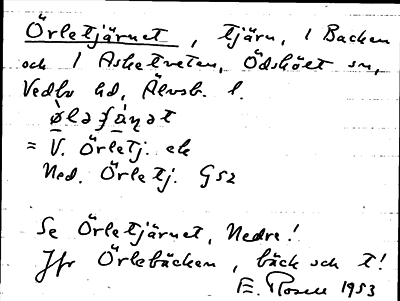 Örletjärnet, tjärn, i Backen
och i Asketveten, Ödskölt sn,
Vedbo hd, Älvsb. l.
= V. Örletj. ek
Ned. Örletj. GS2
Se Örletjärnet, Nedre!
Jfr Örlebäcken, bäck och t!
E. Rosell 1953